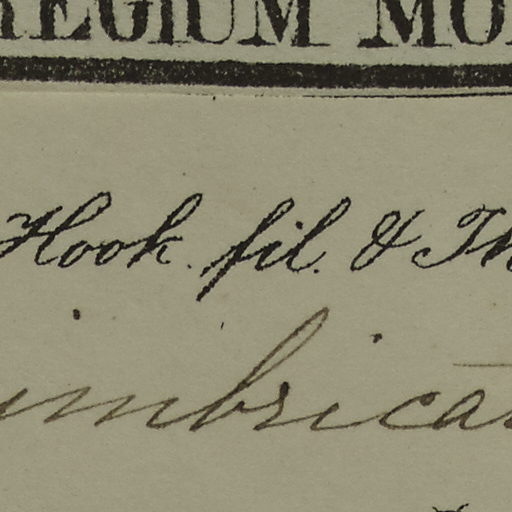 REGIUM MO
Hook. fil. & Th
imbrica